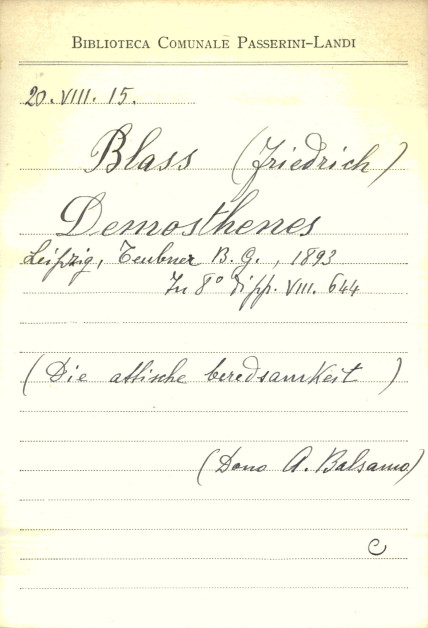 BIBLIOTECA COMUNALE PASSERINI-LANDI
20. VIII. 15.
Blass (Friedrich)
Demosthenes
Leipzig, Teubner B. G., 1893
In 8° di pp. VIII. 644
(Die attische beredsamkeit)
(Dono A. Balsamo)
C